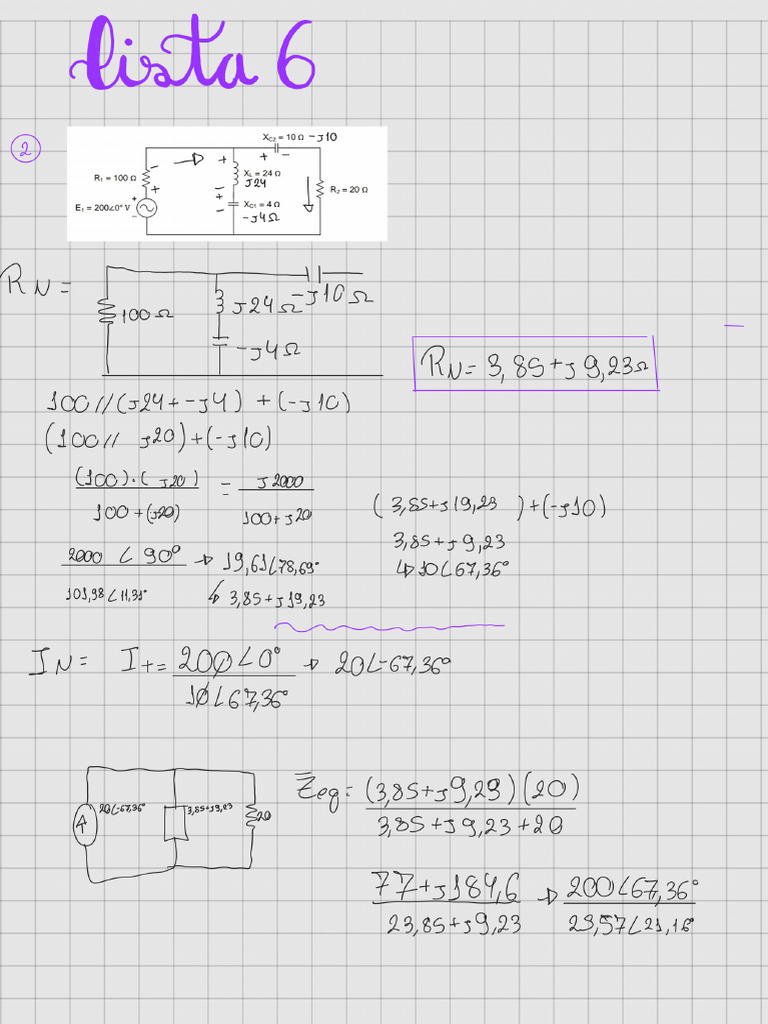 lista 6
2
XC2 = 10 Ω -J10
R1 = 100 Ω
XL = 24 Ω
J24
R2 = 20 Ω
E1 = 200∠0° V
XC1 = 4 Ω
-J4Ω
RN =
100Ω
J24Ω
-J10Ω
-J4Ω
RN = 3,85+J9,23Ω
100//(J24+-J4) + (-J10)
(100// J20)+(-J10)
(100)·(J20) = J2000
100+(J20) 100+J20
(3,85+J19,23)+(-J10)
3,85+J9,23
↳10∠67,36°
2000∠90° → 19,61∠78,69°
101,98∠11,31° ↳ 3,85+J19,23
IN = I+= 200∠0° → 20∠-67,36°
10∠67,36°
20∠-67,36°
3,85+J9,23
20
Zeq= (3,85+J9,23)(20)
3,85+J9,23+20
77+J184,6 → 200∠67,36°
23,85+J9,23 25,57∠21,16°